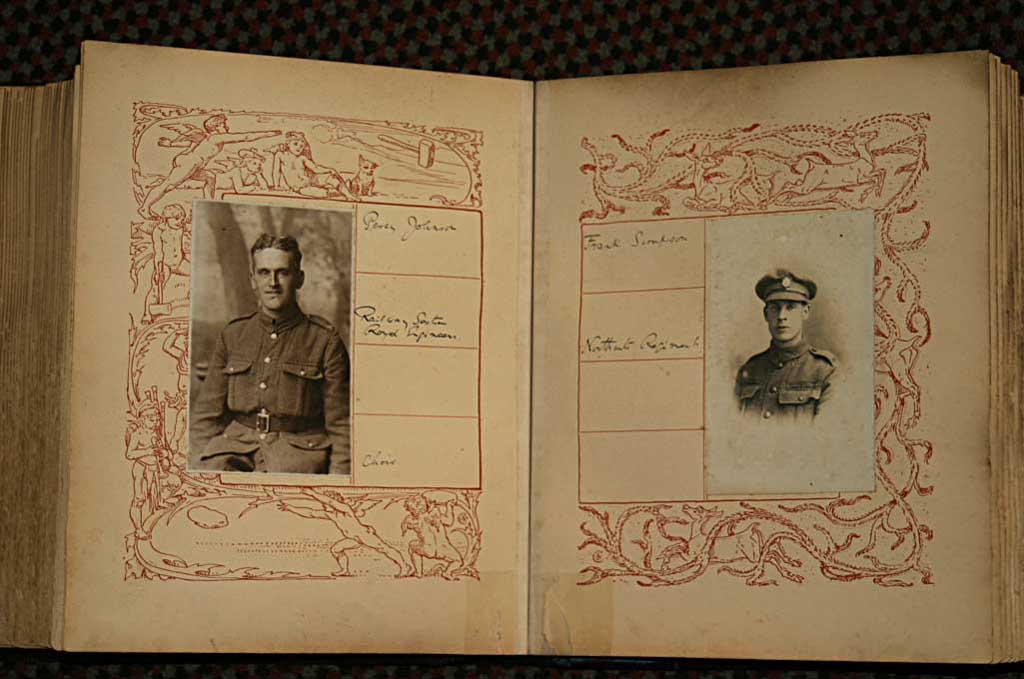 Percy Johnson
Railway Section
Royal Engineers
Choir
Frank Simpson
Northants Regiment